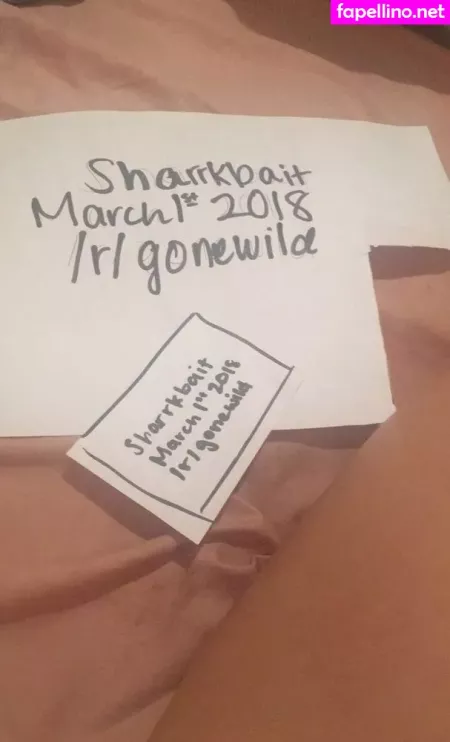 fapellino.net
Sharrkbait
March 1st 2018
/r/gonewild
Sharrkbait
March 1st 2018
/r/gonewild